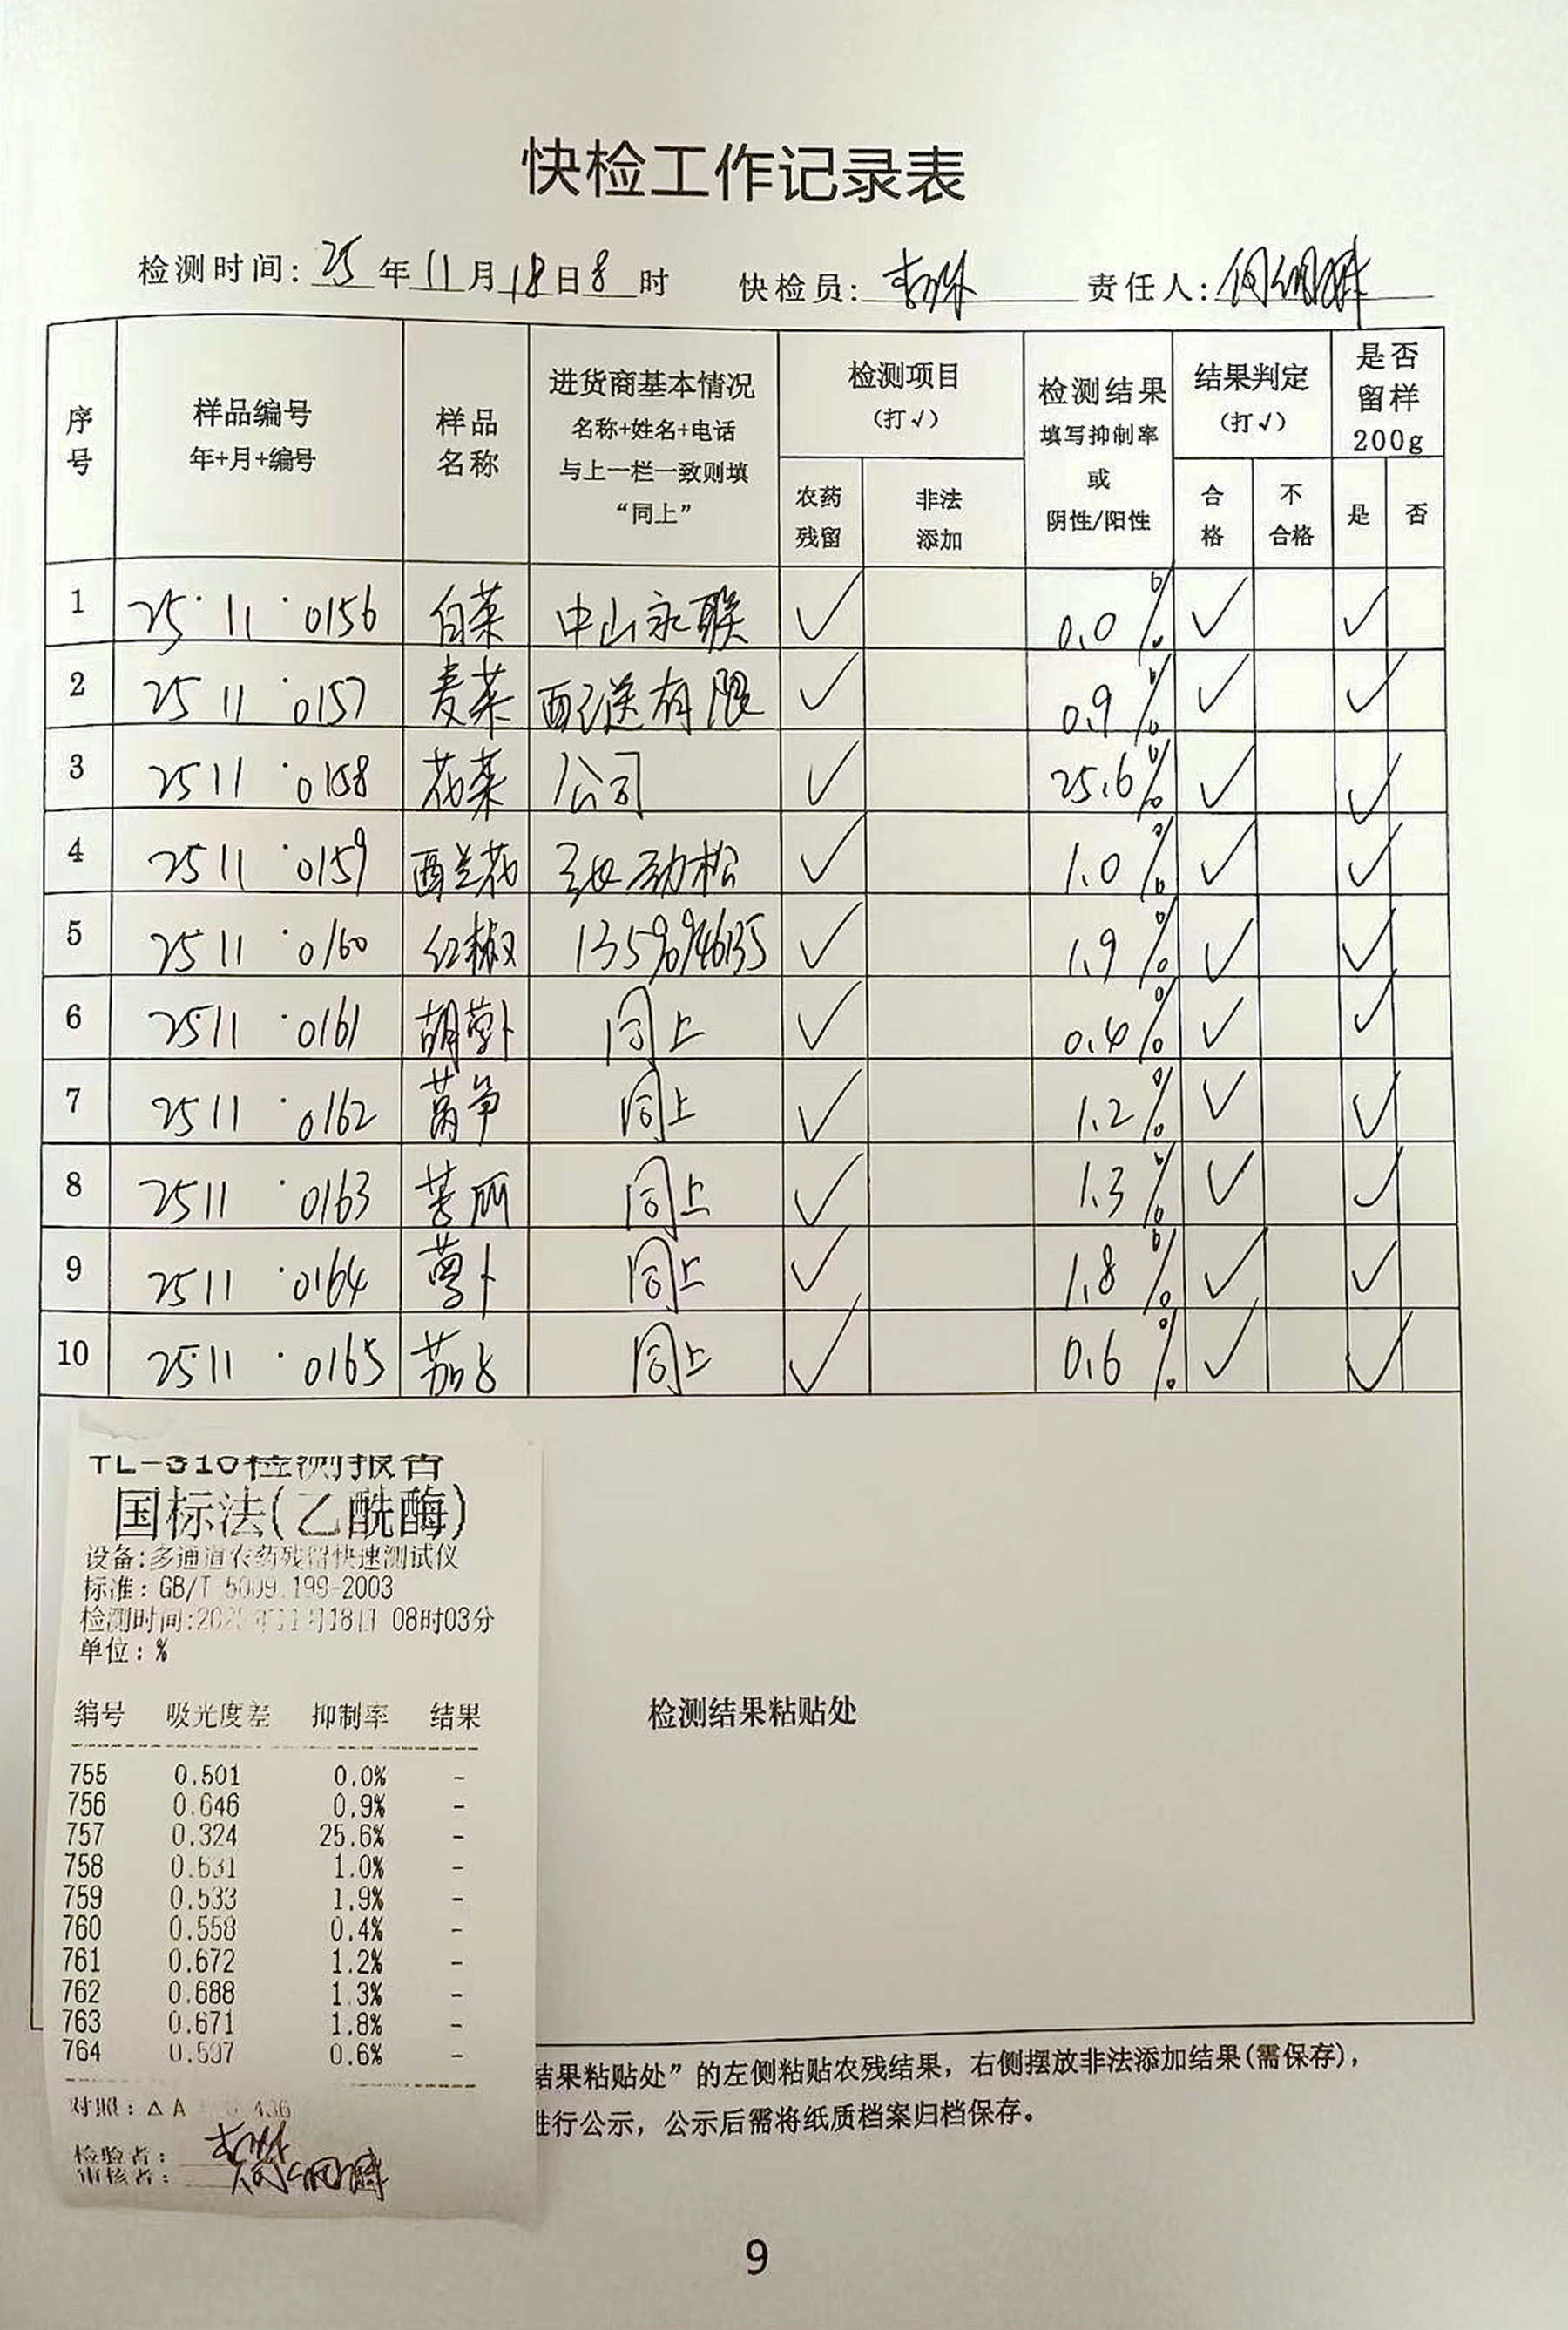 快检工作记录表
检测时间: 25 年 11 月 18 日 8 时 快检员: 责任人:
序号 样品编号 年+月+编号 样品名称 进货商基本情况 名称+姓名+电话 与上一栏一致则填“同上” 检测项目 (打√) 农药残留 非法添加 检测结果 填写抑制率 或 阴性/阳性 结果判定 (打√) 合格 不合格 是否留样 200g 是 否
1 25·11·0156 白菜 中山永联 ✓ 0.0% ✓ ✓
2 25 11·0157 麦菜 配送有限 ✓ 0.9% ✓ ✓
3 25 11·0158 花菜 公司 ✓ 25.6% ✓ ✓
4 25 11·0159 西兰花 劲松 ✓ 1.0% ✓ ✓
5 25 11·0160 红椒 ✓ 1.9% ✓ ✓
6 25 11·0161 胡萝卜 同上 ✓ 0.4% ✓ ✓
7 25 11·0162 莴笋 同上 ✓ 1.2% ✓ ✓
8 25 11·0163 苦瓜 同上 ✓ 1.3% ✓ ✓
9 25 11·0164 萝卜 同上 ✓ 1.8% ✓ ✓
10 25 11·0165 茄子 同上 ✓ 0.6% ✓ ✓
TL-310检测报告
国标法(乙酰酶)
设备:多通道农药残留快速测试仪
标准: GB/T 5009.199-2003
检测时间:2025年11月18日 08时03分
单位: %
编号 吸光度差 抑制率 结果
755 0.501 0.0% -
756 0.646 0.9% -
757 0.324 25.6% -
758 0.631 1.0% -
759 0.533 1.9% -
760 0.558 0.4% -
761 0.672 1.2% -
762 0.688 1.3% -
763 0.671 1.8% -
764 0.597 0.6% -
对照: △A 436
检验者:
审核者:
检测结果粘贴处
结果粘贴处”的左侧粘贴农残结果，右侧摆放非法添加结果(需保存)，
进行公示，公示后需将纸质档案归档保存。
9